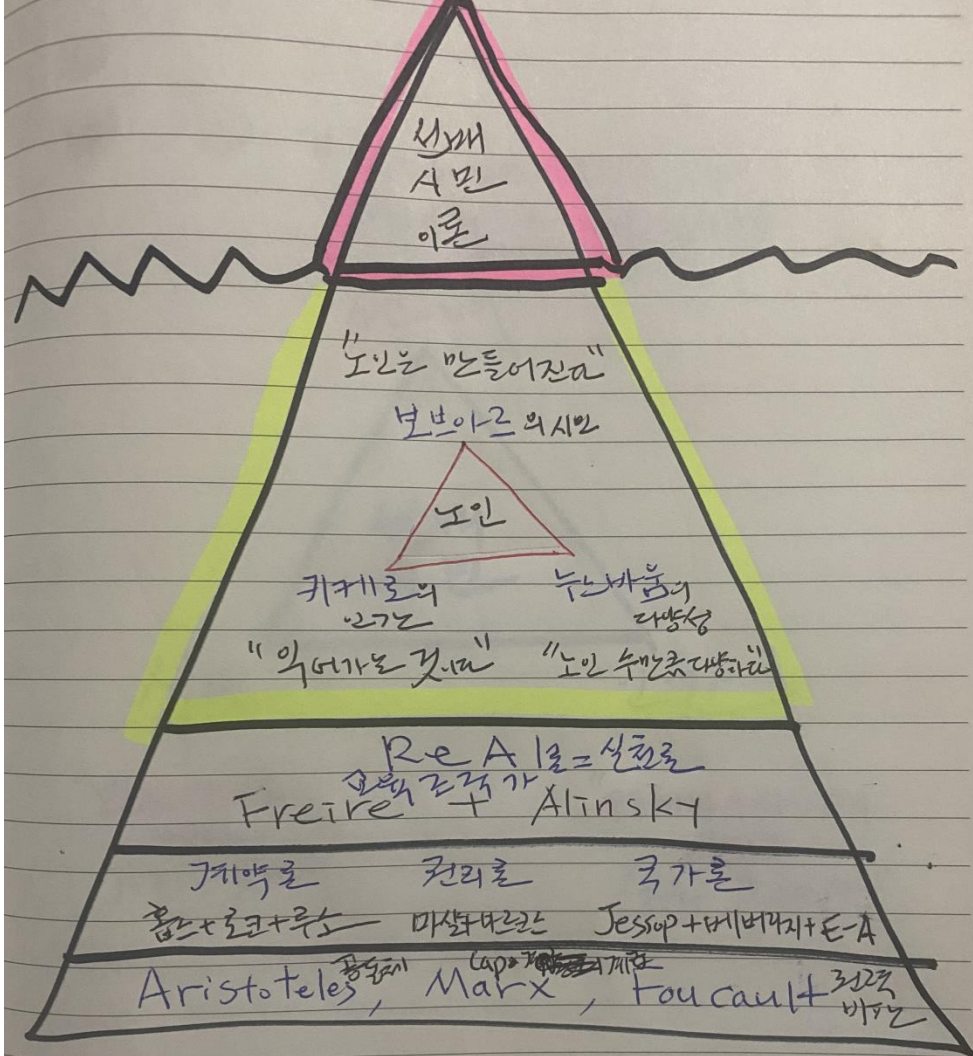 선배
시민
이론
"노인은 만들어진다"
보브아르의 시민
노인
키케로의 누스바움의
인간 다양성
"익어가는 것이다" "노인 수만큼 다양하다"
ReAl론=실천론
교육 조직가
Freire + Alinsky
계약론 권리론 국가론
홉스+로크+루소 마샬+바르칸 Jessop+베버리지+E-A
공동체 비판
Aristoteles, Marx, Foucault 권력